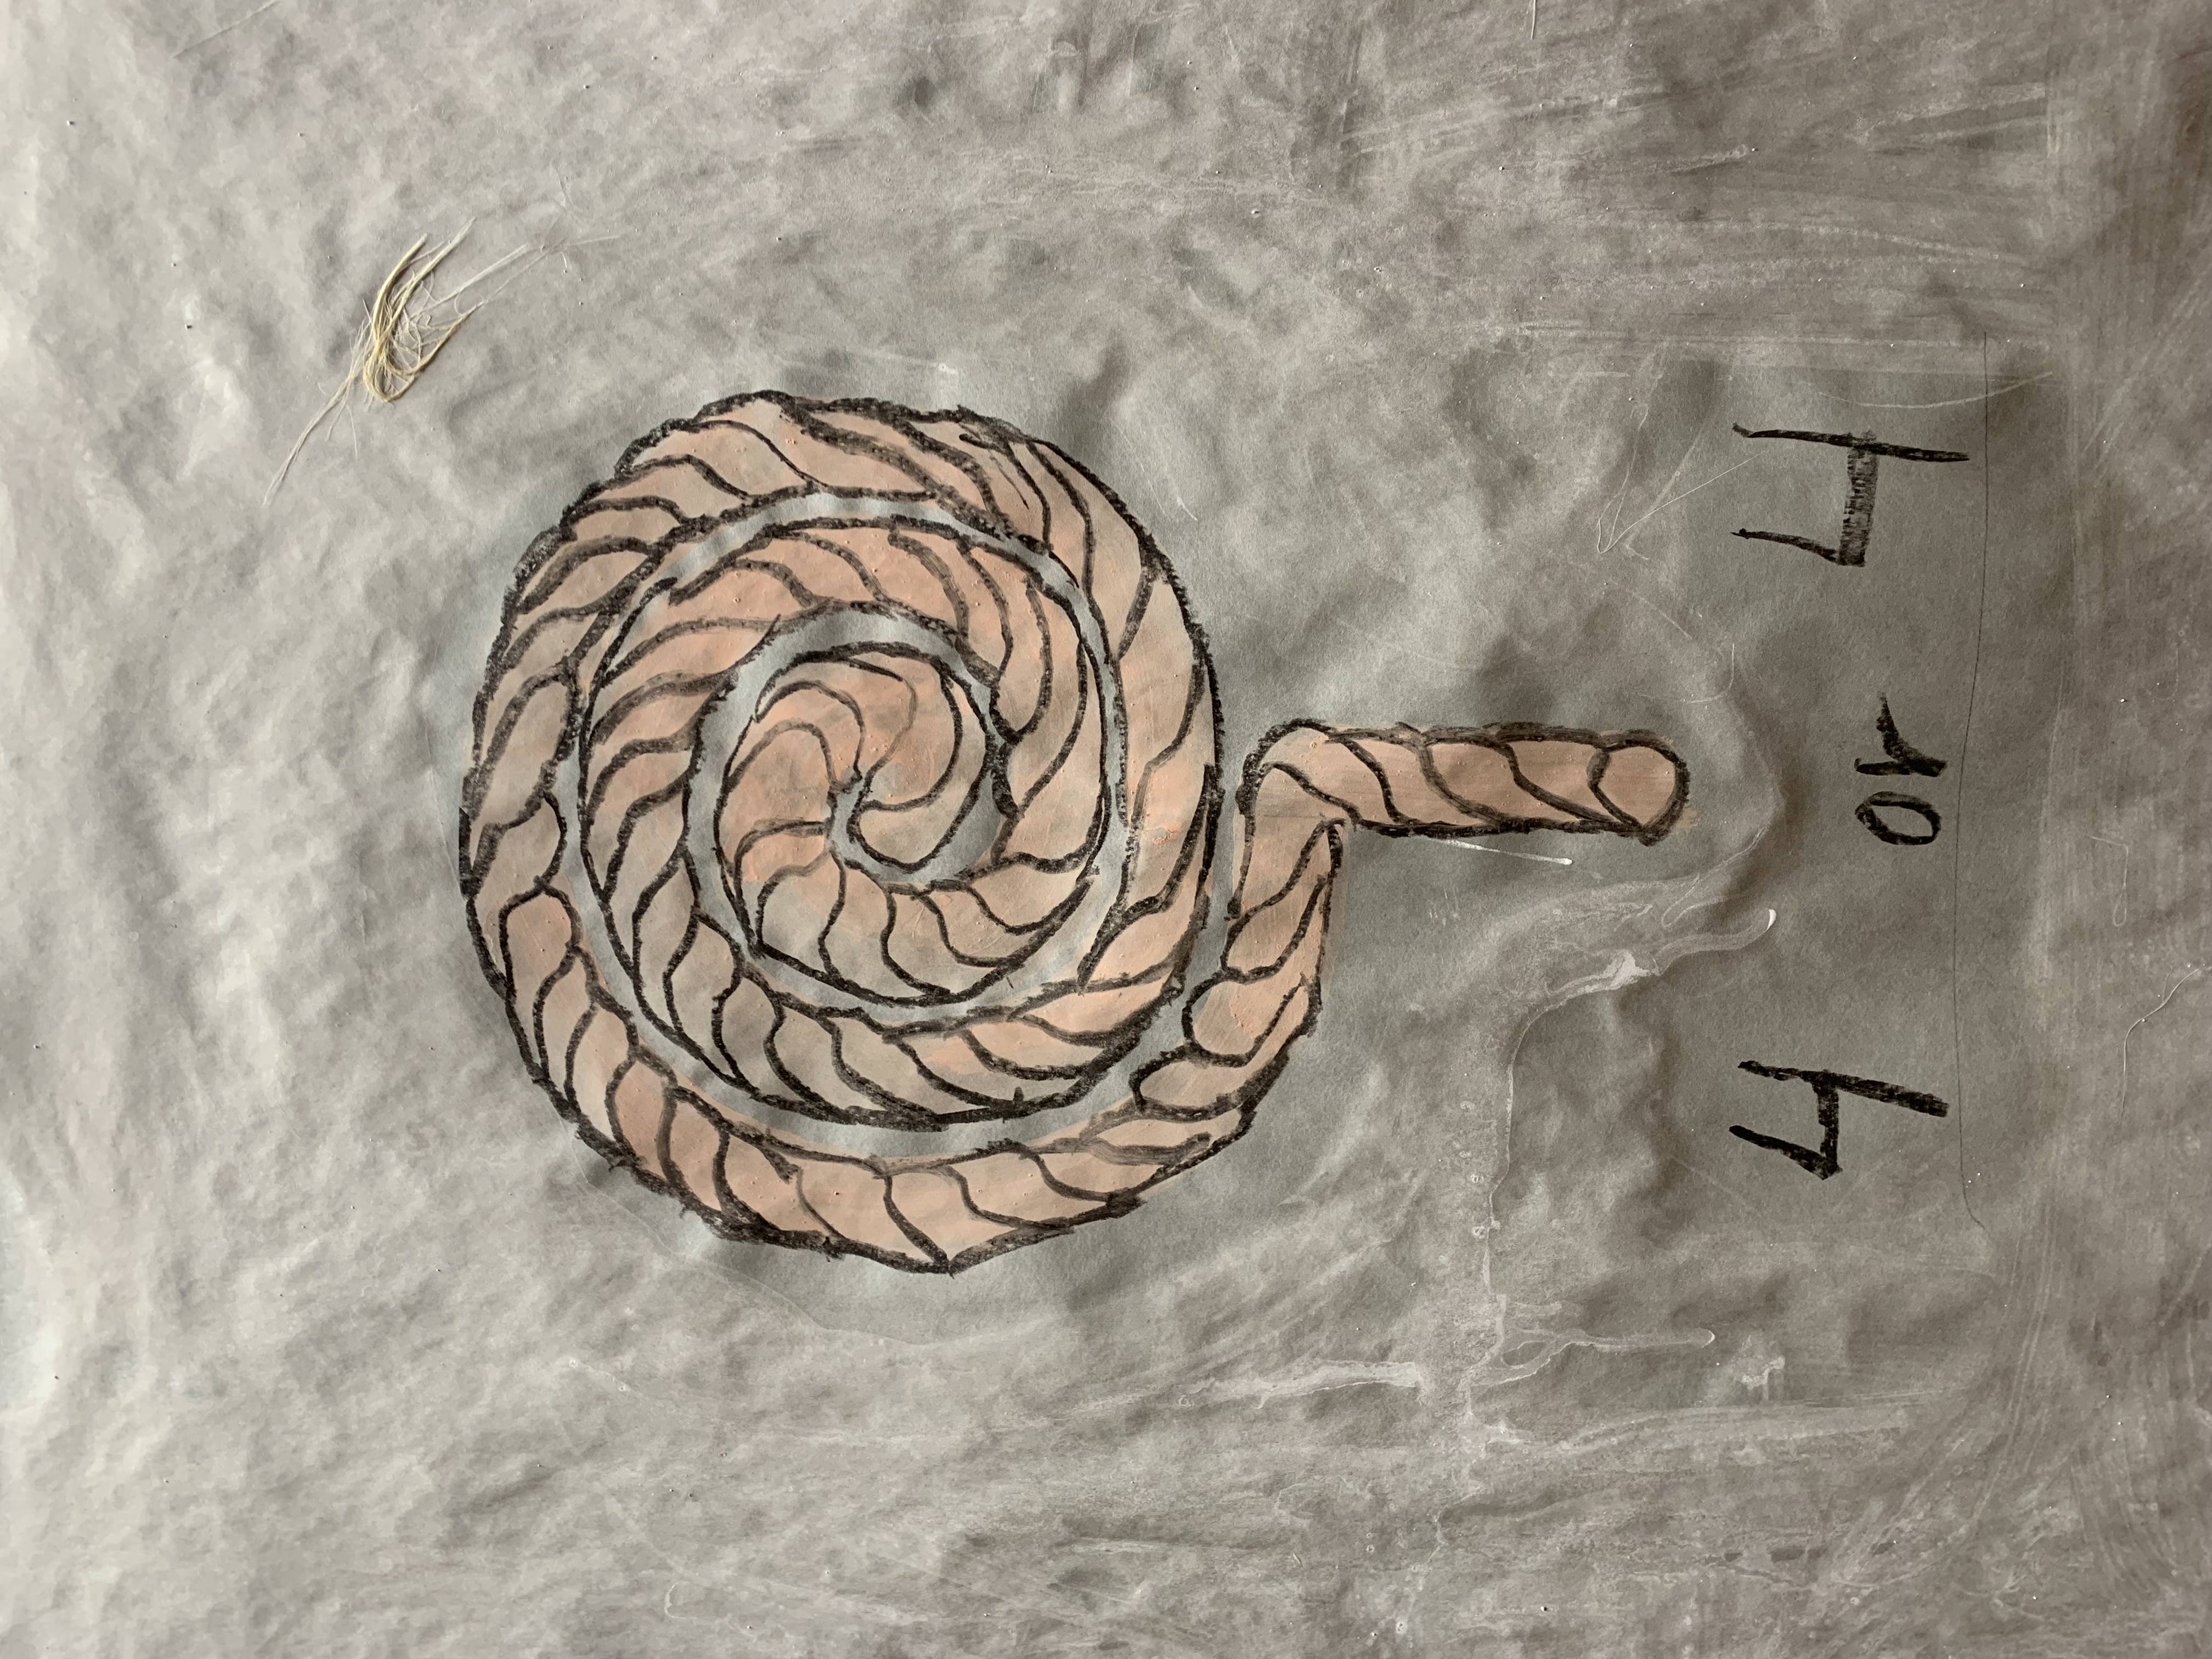 4 or 4